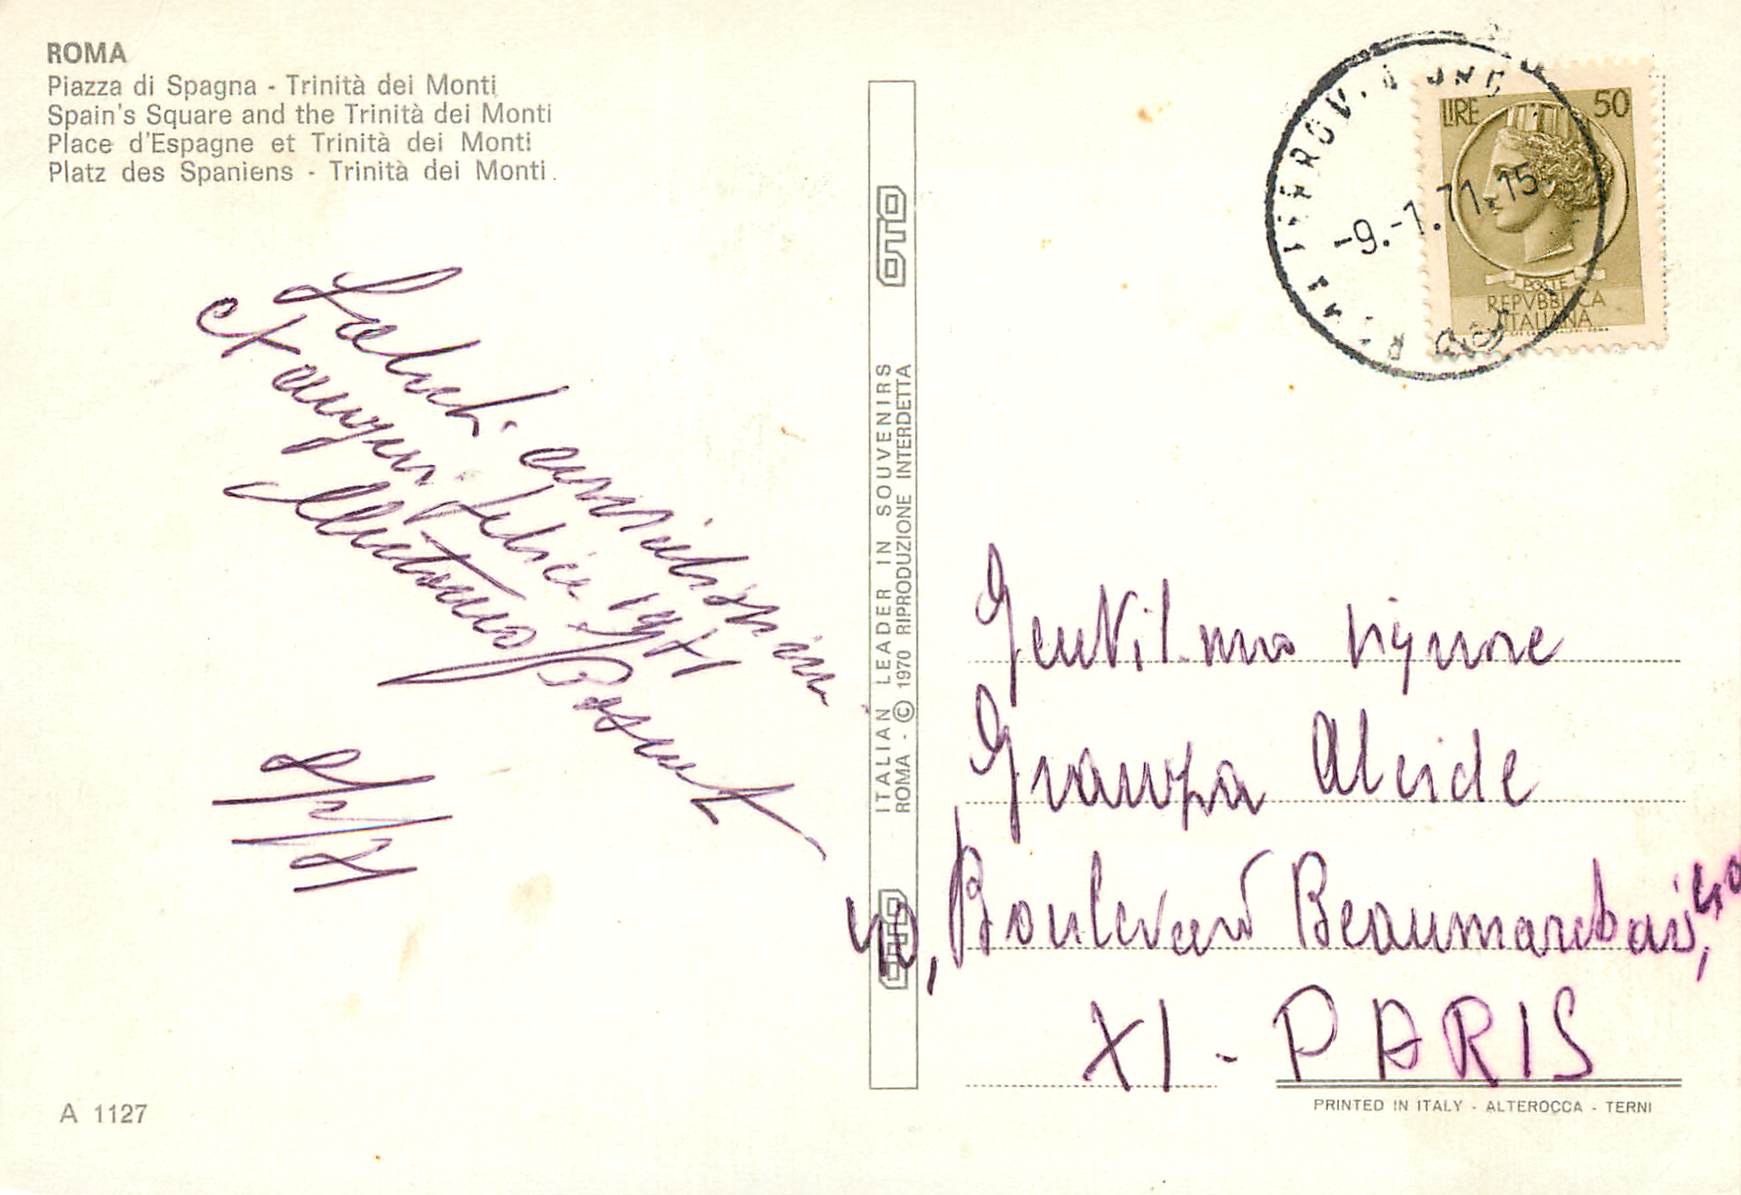 ROMA
Piazza di Spagna - Trinità dei Monti
Spain's Square and the Trinità dei Monti
Place d'Espagne et Trinità dei Monti
Platz des Spaniens - Trinità dei Monti.
Saluti
et auguri felice 1971
A 1127
OTO
ITALIAN LEADER IN SOUVENIRS
ROMA - © 1970 RIPRODUZIONE INTERDETTA
OTO
-9.-1.71.15
LIRE 50
POSTE
REPVBBLICA
ITALIANA
Gentil.mo signore
Alcide
40, Boulevard Beaumarchais, 40
XI - PARIS
PRINTED IN ITALY - ALTEROCCA - TERNI